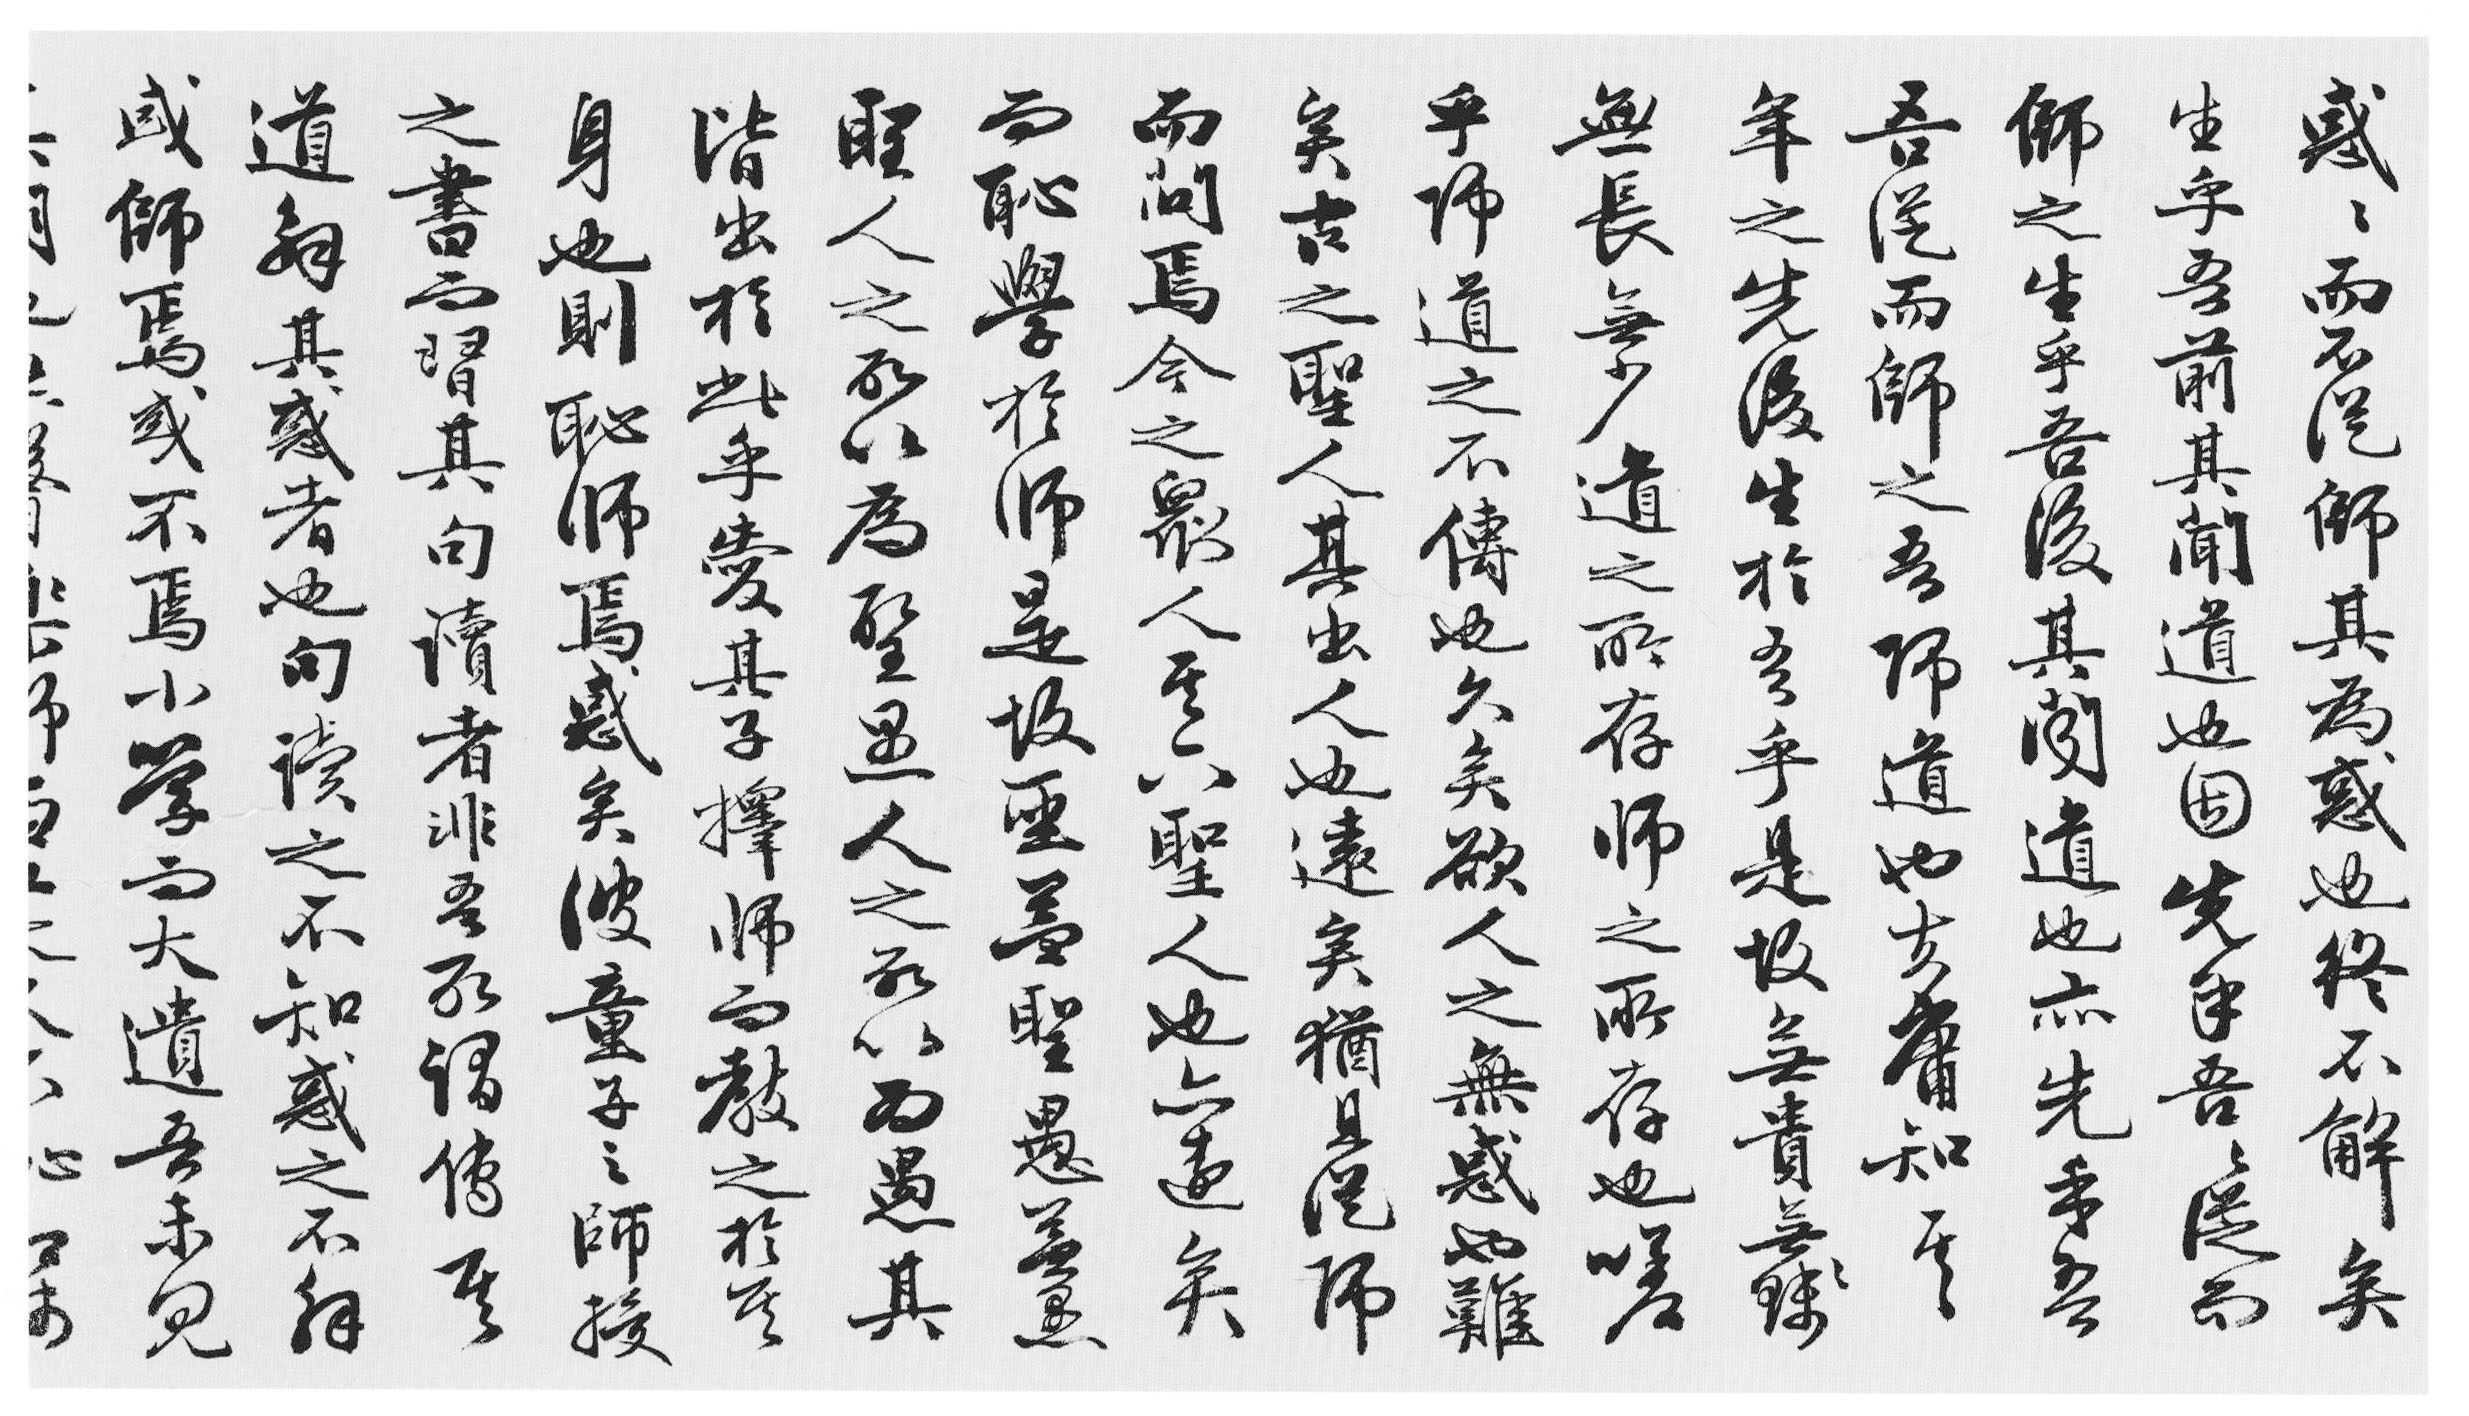 惑〻而不從師其為惑也終不解矣
生乎吾前其聞道也固先乎吾〻從而
師之生乎吾後其聞道也亦先乎吾
吾從而師之吾師道也夫庸知其
年之先後生於吾乎是故無貴無賤
無長無少道之所存師之所存也嗟
乎師道之不傳也久矣欲人之無惑也難
矣古之聖人其出人也遠矣猶且從師
而問焉今之眾人其下聖人也亦遠矣
而恥學於師是故聖益聖愚益愚
聖人之所以為聖愚人之所以為愚其
皆出於此乎愛其子擇師而教之於其
身也則恥師焉惑矣彼童子之師授
之書而習其句讀者非吾所謂傳其
道解其惑者也句讀之不知惑之不解
或師焉或不焉小學而大遺吾未見
其明也巫醫樂師百工之人不恥